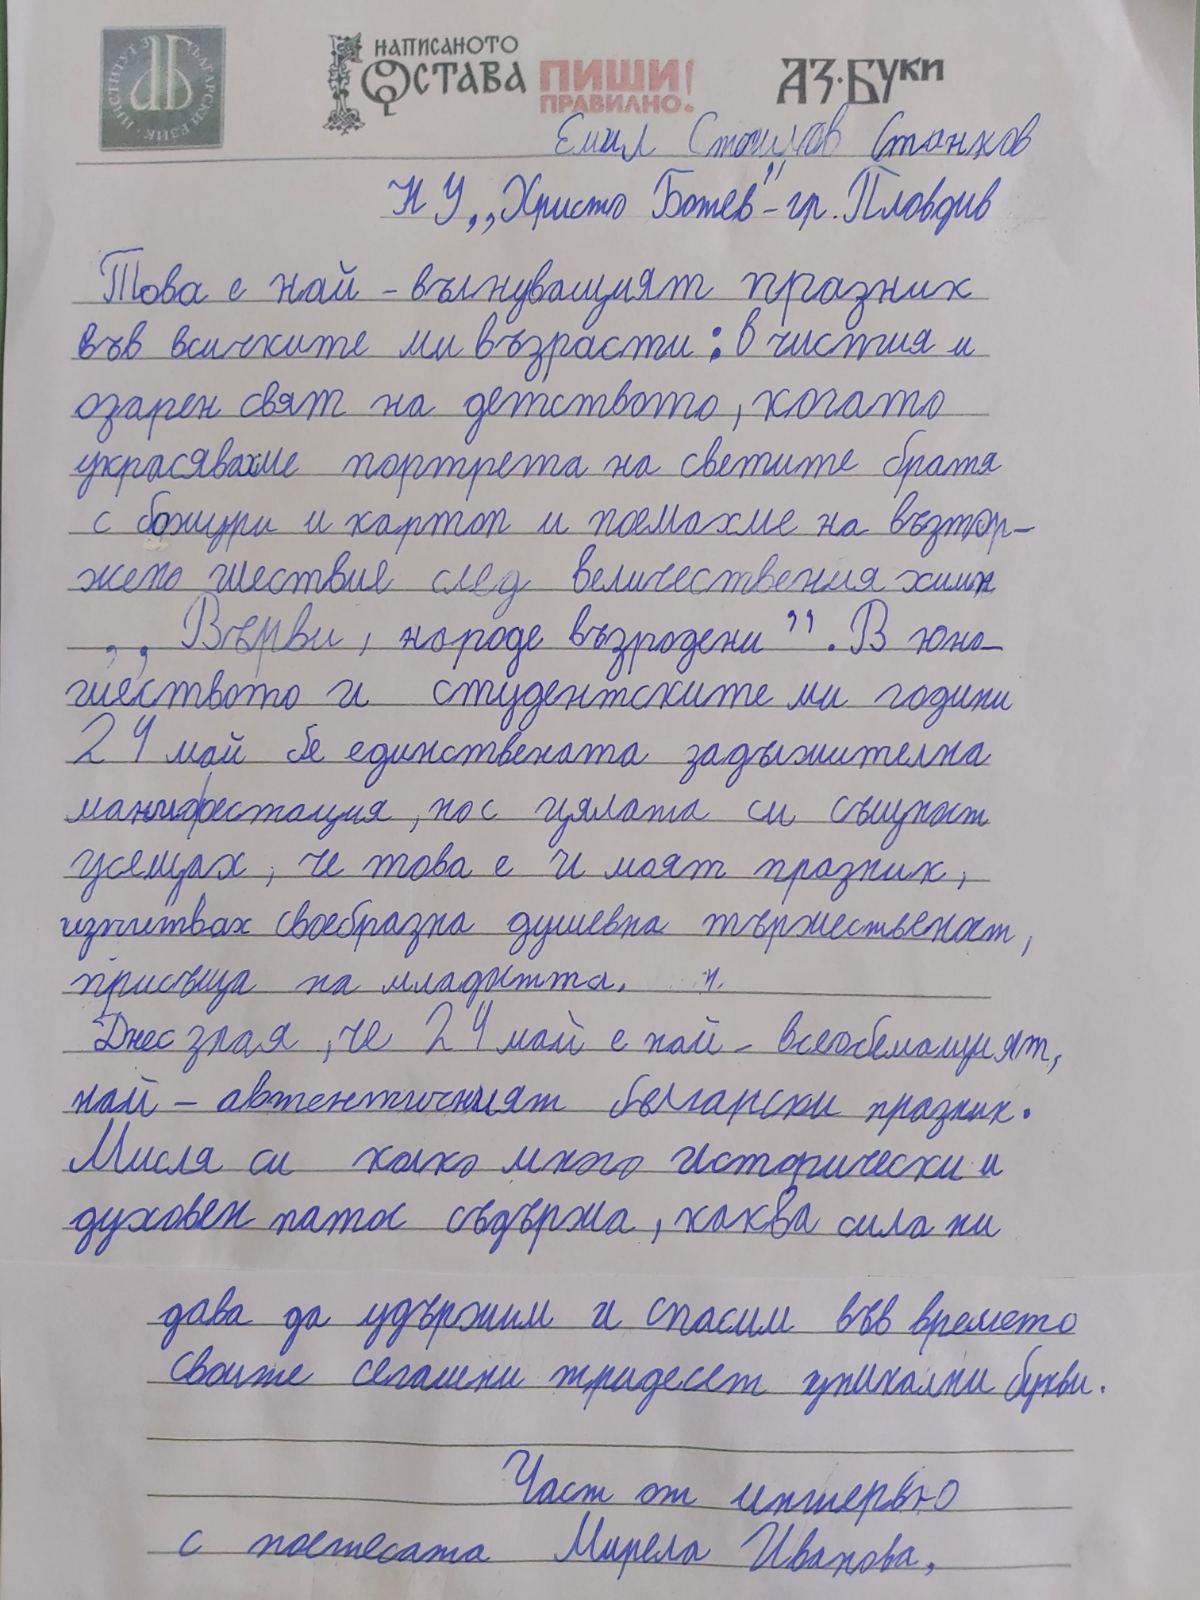 ИНСТИТУТ ЗА БЪЛГАРСКИ ЕЗИК
НАПИСАНОТО
ОСТАВА
ПИШИ!
ПРАВИЛНО.
АЗ·БУКИ
Емил Стоилов Станков
НУ „Христо Ботев" - гр. Пловдив
Това е най - вълнуващият празник
във всичките ми възрасти: в чистия и
озарен свят на детството, когато
украсявахме портрета на светите братя
с божури и картоп и поемахме на възтор-
жено шествие след величествения химн
„Върви, народе възродени". В юно-
шеството и студентските ми години
24 май бе единствената задължителна
манифестация, но с цялата си същност
усещах, че това е и моят празник,
изпитвах своеобразна душевна тържественост,
присъща на младостта.
Днес зная, че 24 май е най - всеобемащият,
най - автентичният български празник.
Мисля си колко много исторически и
духовен патос съдържа, каква сила ни
дава да удържим и спасим във времето
своите сегашни тридесет уникални букви.
Част от интервю
с поетесата Мирела Иванова,